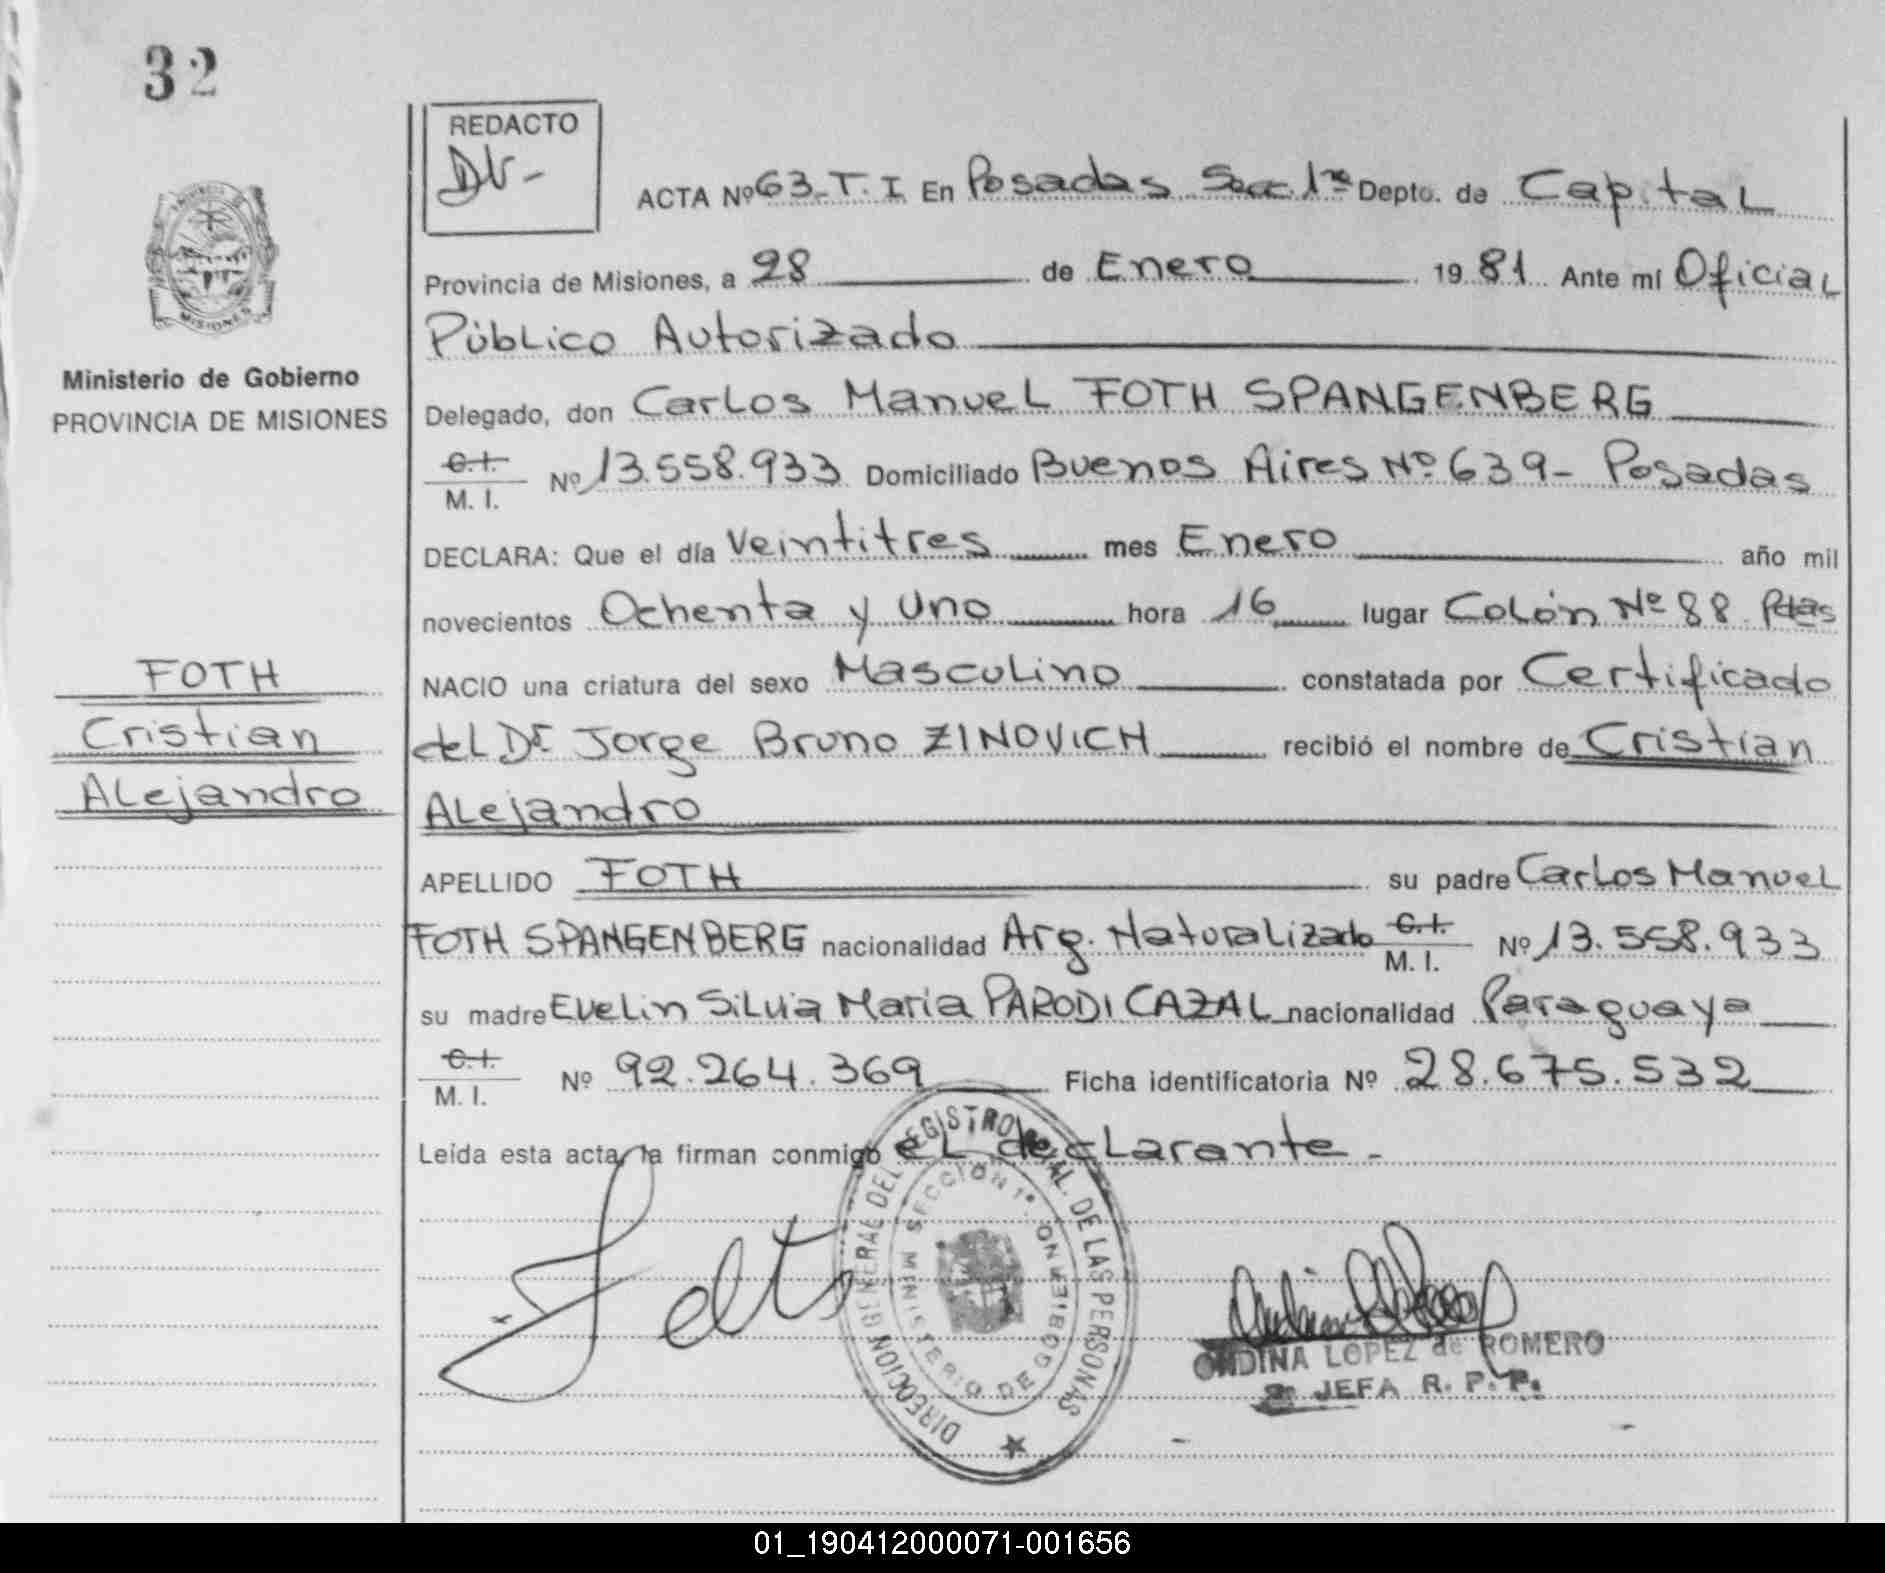 32
REDACTO
ACTA Nº 63-T.I En Posadas Secc. 1ra Depto. de Capital
Provincia de Misiones, a 28 de Enero 1981 Ante mí Oficial
Público Autorizado
Delegado, don Carlos Manuel FOTH SPANGENBERG
C.I. M. I. Nº 13.558.933 Domiciliado Buenos Aires Nº 639- Posadas
DECLARA: Que el día Veintitres mes Enero año mil
novecientos Ochenta y Uno hora 16 lugar Colón Nº 88 Pdas
NACIO una criatura del sexo Masculino constatada por Certificado
del Dr Jorge Bruno ZINOVICH recibió el nombre de Cristian
Alejandro
APELLIDO FOTH su padre Carlos Manuel
FOTH SPANGENBERG nacionalidad Arg. Naturalizado C.I. M. I. Nº 13.558.933
su madre Evelin Silvia María PARODI CAZAL nacionalidad Paraguaya
C.I. M. I. Nº 92.264.369 Ficha identificatoria Nº 28.675.532
Leída esta acta, la firman conmigo el declarante.-
PROVINCIA
MISIONES
Ministerio de Gobierno
PROVINCIA DE MISIONES
FOTH
Cristian
Alejandro
DIRECCION GENERAL DEL REGISTRO DE LAS PERSONAS
SECCION 1ª
MINISTERIO DE GOBIERNO
ONDINA LOPEZ de ROMERO
JEFA R. P. P.
01_190412000071-001656